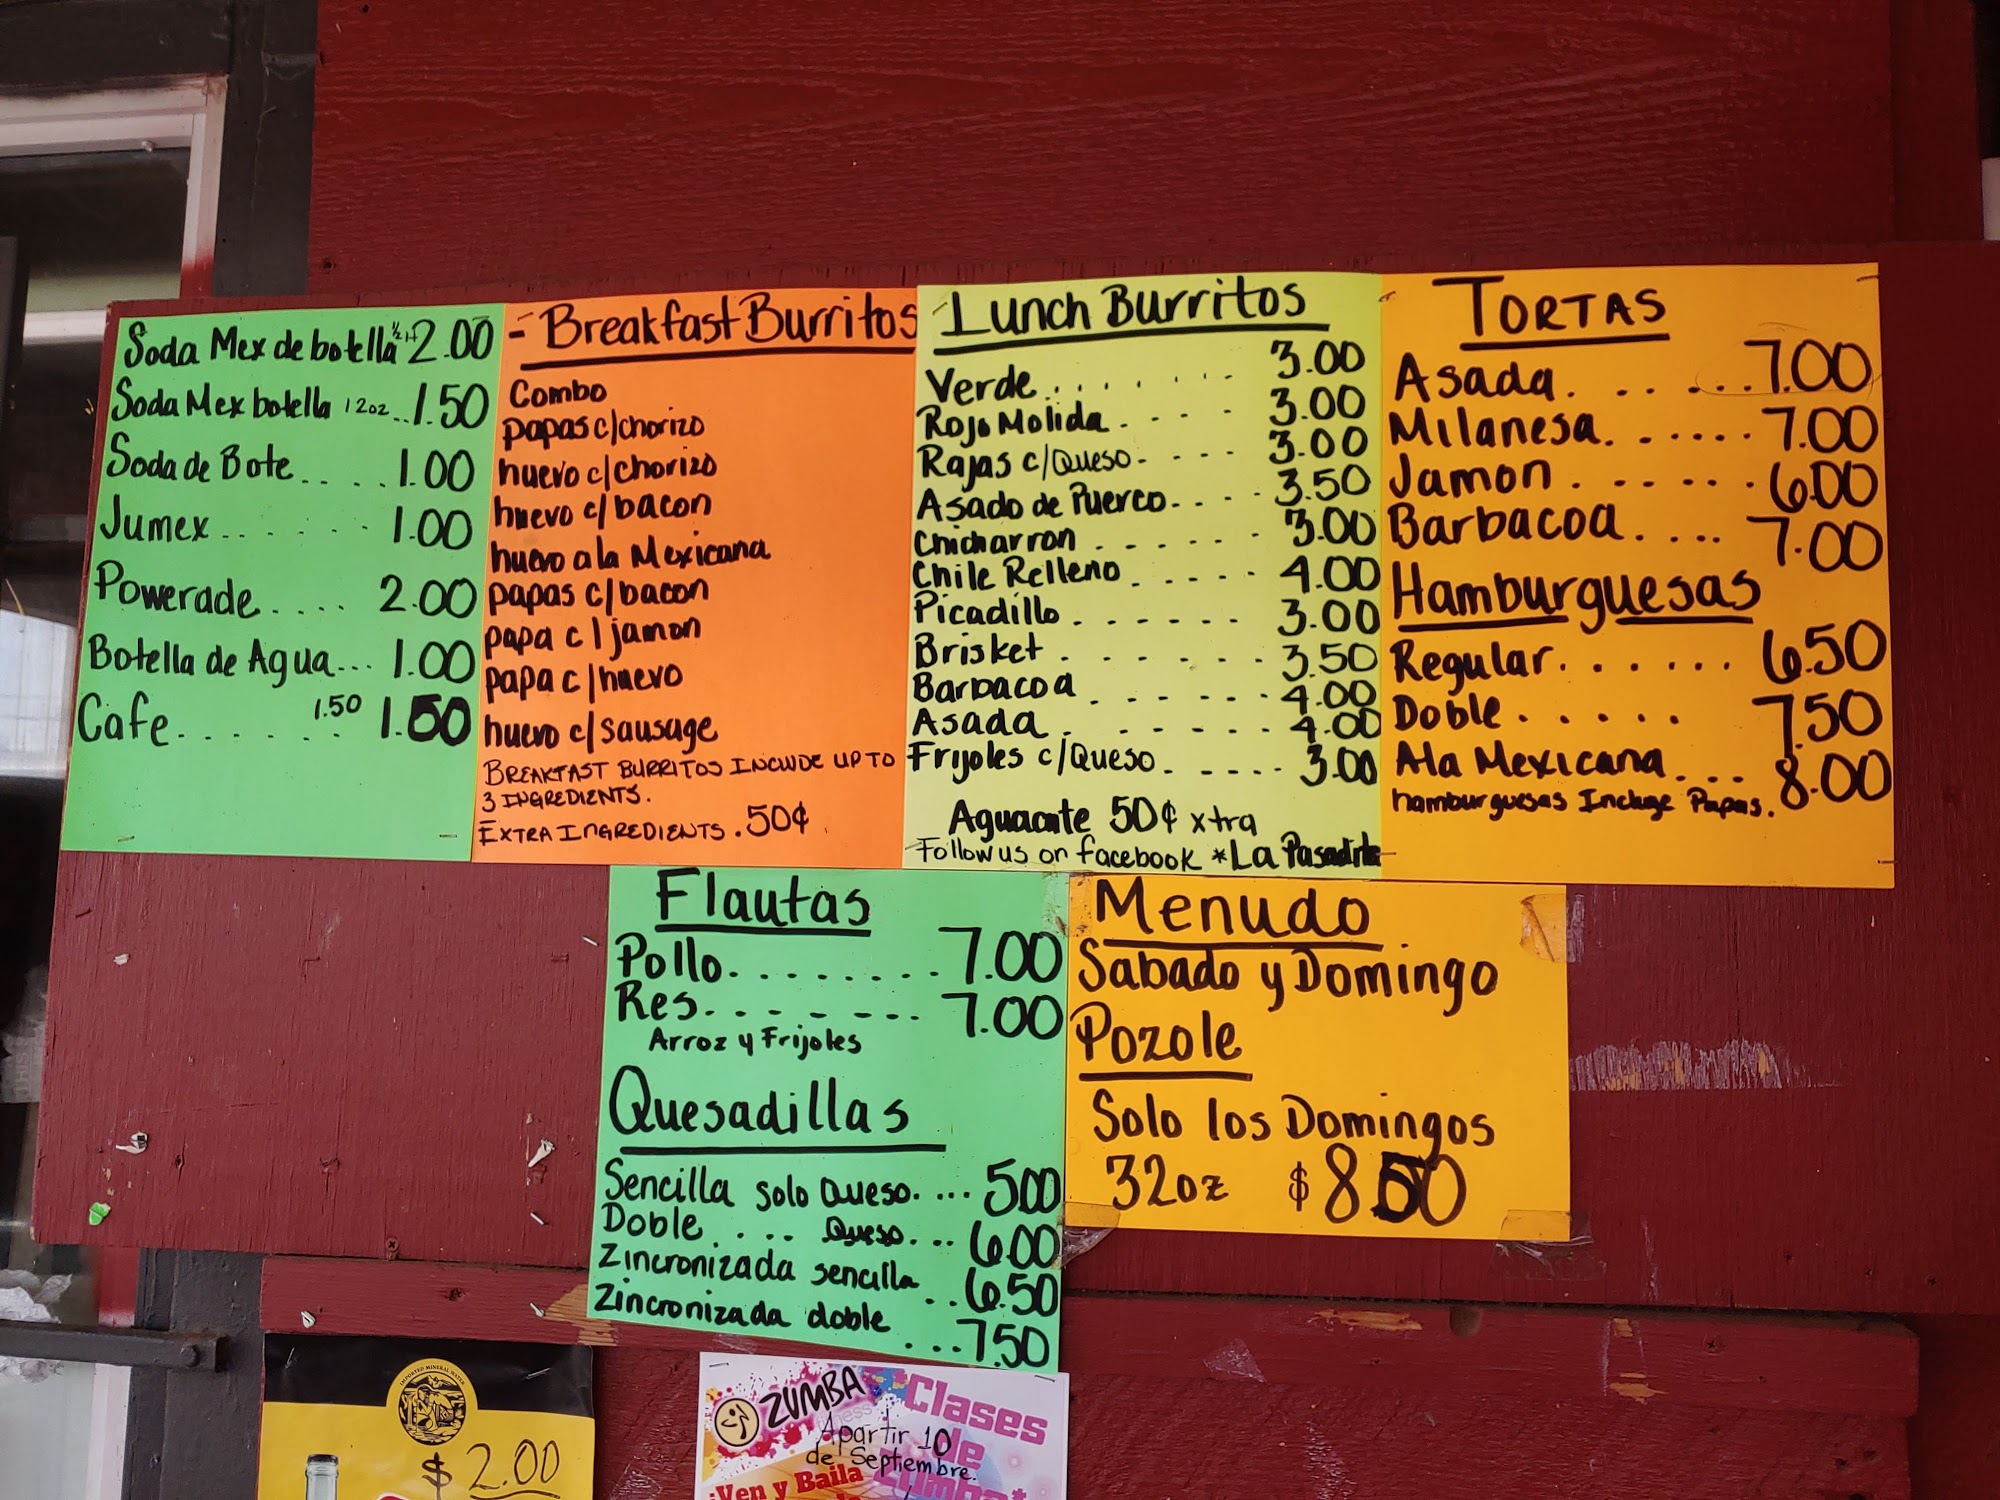 Soda Mex de botella ½ Lt 2.00
Soda Mex botella 12oz..1.50
Soda de Bote.....1.00
Jumex.......1.00
Powerade.... 2.00
Botella de Agua...1.00
Cafe....... 1.50 1.50
- Breakfast Burritos
Combo
papas c/chorizo
huevo c/chorizo
huevo c/bacon
huevo ala Mexicana
papas c/bacon
papa c/jamon
papa c/huevo
huevo c/sausage
BREAKFAST BURRITOS INCLUDE UP TO
3 INGREDIENTS.
EXTRA INGREDIENTS .50¢
Lunch Burritos
Verde....... 3.00
Rojo Molida.... 3.00
Rajas c/Queso.... 3.00
Asado de Puerco.... 3.50
Chicharron...... 3.00
Chile Relleno..... 4.00
Picadillo...... 3.00
Brisket....... 3.50
Barbacoa...... 4.00
Asada....... 4.00
Frijoles c/Queso..... 3.00
Aguacate 50¢ xtra
Follow us on facebook *La Pasadita
TORTAS
Asada......7.00
Milanesa...... 7.00
Jamon....... 6.00
Barbacoa.... 7.00
Hamburguesas
Regular....... 6.50
Doble..... 7.50
Ala Mexicana... 8.00
hamburguesas Include Papas.
Flautas
Pollo........ 7.00
Res........ 7.00
Arroz y Frijoles
Quesadillas
Sencilla solo Queso.... 5.00
Doble.... Queso... 6.00
Zincronizada sencilla..6.50
Zincronizada doble ...7.50
Menudo
Sabado y Domingo
Pozole
Solo los Domingos
32oz $8.50
IMPORTED MINERAL WATER
$2.00
ZUMBA Clases
Apartir 10 de
de Septiembre.
¡Ven y Baila